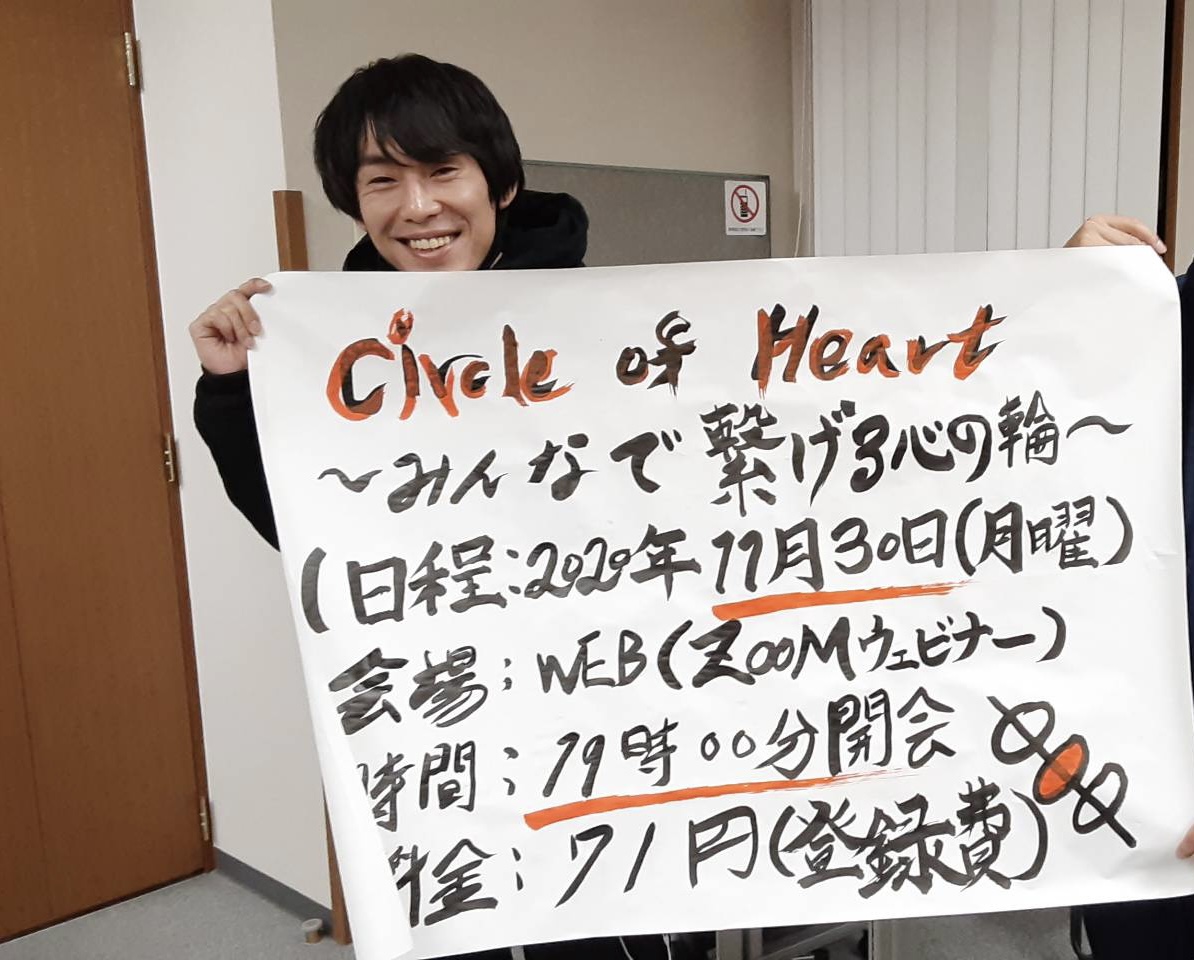 Circle of Heart
~みんなで繋げる心の輪~
(日程:2020年11月30日(月曜)
会場:WEB(ZOOMウェビナー)
時間:19時00分開会
料金:71円(登録費)